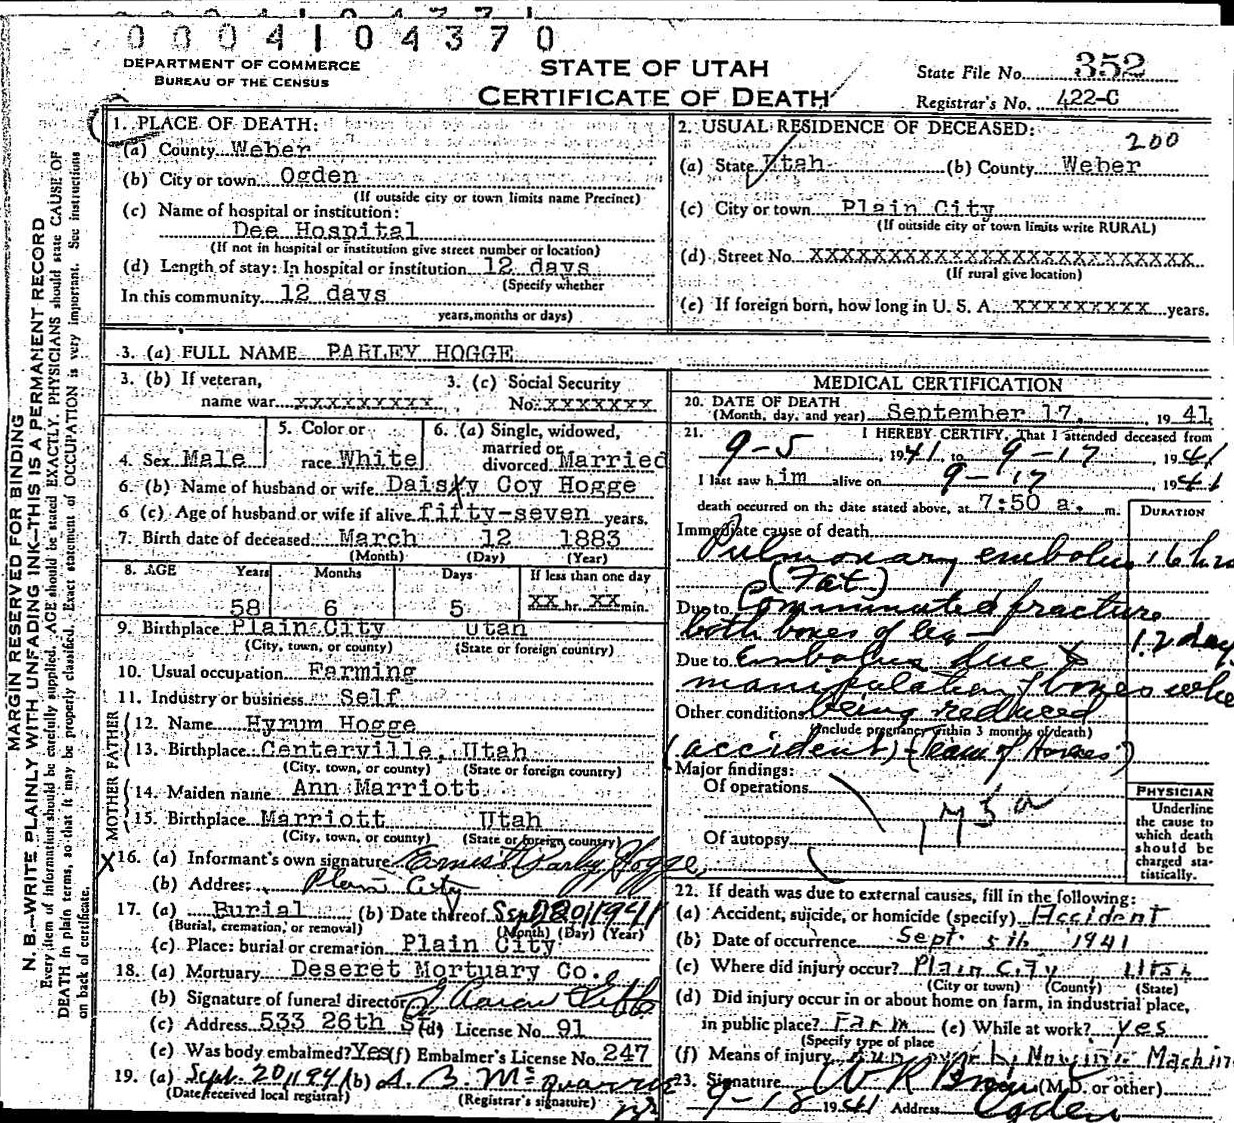 0004104370
DEPARTMENT OF COMMERCE
BUREAU OF THE CENSUS
STATE OF UTAH
CERTIFICATE OF DEATH
State File No. 352
Registrar's No. 422-C
1. PLACE OF DEATH:
(a) County Weber
(b) City or town Ogden
(If outside city or town limits name Precinct)
(c) Name of hospital or institution:
Dee Hospital
(If not in hospital or institution give street number or location)
(d) Length of stay: In hospital or institution 12 days
(Specify whether
In this community 12 days
years, months or days)
2. USUAL RESIDENCE OF DECEASED:
200
(a) State Utah (b) County Weber
(c) City or town Plain City
(If outside city or town limits write RURAL)
(d) Street No. XXXXXXXXXXXXXXXXXXXXXXXX
(If rural give location)
(e) If foreign born, how long in U. S. A. XXXXXXXXX years.
3. (a) FULL NAME PARLEY HOGGE
3. (b) If veteran,
name war XXXXXXXXX
3. (c) Social Security
No. XXXXXXX
4. Sex Male
5. Color or
race White
6. (a) Single, widowed,
married or
divorced Married
6. (b) Name of husband or wife Daisy Coy Hogge
6 (c) Age of husband or wife if alive fifty-seven years.
7. Birth date of deceased March 12 1883
(Month) (Day) (Year)
8. AGE Years Months Days If less than one day
58 6 5 XX hr. XX min.
9. Birthplace Plain City Utah
(City, town, or county) (State or foreign country)
10. Usual occupation Farming
11. Industry or business Self
FATHER
12. Name Hyrum Hogge
13. Birthplace Centerville, Utah
(City, town, or county) (State or foreign country)
MOTHER
14. Maiden name Ann Marriott
15. Birthplace Marriott Utah
(City, town, or county) (State or foreign country)
X16. (a) Informant's own signature Ernest Parley Hogge
(b) Address Plain City
17. (a) Burial (b) Date thereof Sept 20 1941
(Burial, cremation, or removal) (Month) (Day) (Year)
(c) Place: burial or cremation Plain City
18. (a) Mortuary Deseret Mortuary Co.
(b) Signature of funeral director
(c) Address 533 26th St (d) License No. 91
(e) Was body embalmed? Yes (f) Embalmer's License No. 247
19. (a) Sept. 20 1941 (b)
(Date received local registrar) (Registrar's signature)
MEDICAL CERTIFICATION
20. DATE OF DEATH
(Month, day, and year) September 17, 1941
21. I HEREBY CERTIFY, That I attended deceased from
9-5 1941, to 9-17, 1941
I last saw him alive on 9-17 1941
death occurred on the date stated above, at 7:50 a. m.
DURATION
Immediate cause of death
Pulmonary embolus 16 hrs
(Fat)
Due to Comminuted fracture
both bones of leg — 12 days
Due to Embolus due to
manipulation of bones whe
Other conditions being reduced
(Include pregnancy within 3 months of death)
(accident) - (Team of Horses)
Major findings:
Of operations
Of autopsy
PHYSICIAN
Underline
the cause to
which death
should be
charged sta-
tistically.
22. If death was due to external causes, fill in the following:
(a) Accident, suicide, or homicide (specify) Accident
(b) Date of occurrence Sept. 5th 1941
(c) Where did injury occur? Plain City Utah
(City or town) (County) (State)
(d) Did injury occur in or about home on farm, in industrial place,
in public place? Farm (e) While at work? yes
(Specify type of place
(f) Means of injury Run over by Mowing Machin
23. Signature (M.D. or other)
9-18 1941 Address Ogden
MARGIN RESERVED FOR BINDING
N. B.—WRITE PLAINLY WITH UNFADING INK—THIS IS A PERMANENT RECORD
Every item of information should be carefully supplied. AGE should be stated EXACTLY. PHYSICIANS should state CAUSE OF
DEATH in plain terms, so that it may be properly classified. Exact statement of OCCUPATION is very important. See instructions
on back of certificate.